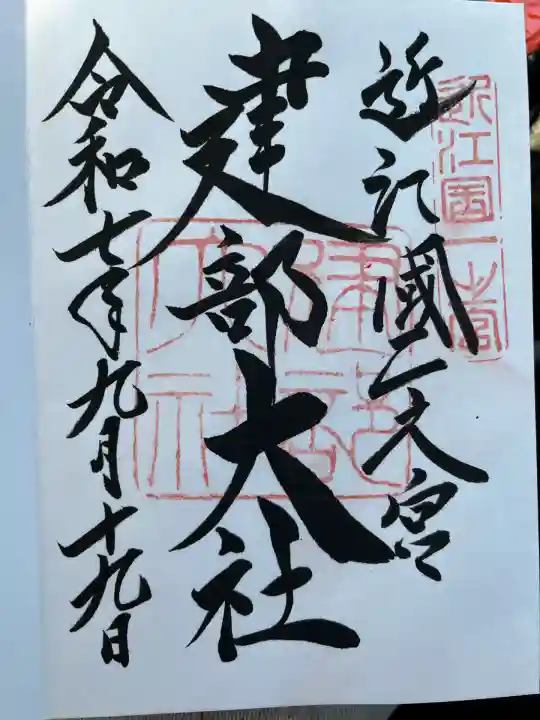 近江國一之宮
近江國一之宮
建部大社
建部大社
令和七年九月十九日